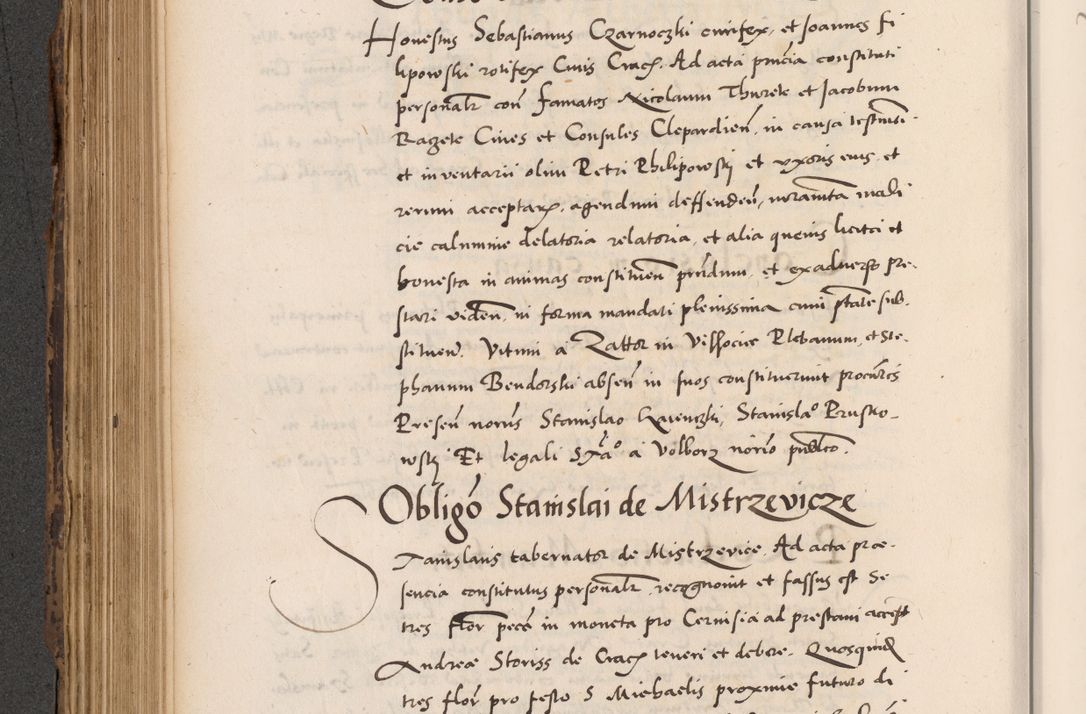 Honestus Sebastianus Czarnoczki curifex, et Joannes Fi
lipowski rotifex Cives Crac. Ad acta pncia constituti
personalr con famatos Nicolaum Thurek et Jacobum
Ragete Cives et Consules Clepardien, in causa testmsi
et inventarii olim Petri Philipowski et uxoris eius, et
rerum acceptar, agendum deffenden, iuramta mali
cie calumnie delatoria relatoria, et alia quevis licita et
honesta in animas constituen prndum, et exadverso pre-
stari viden, in forma mandati plenissima cum ptate sub-
stituend. Vitum a Zattor in Vissocie Plebanum, et Ste-
phanum Bendorski absen in suos constituerunt procures
Presen noris Stanislao Stanislao Prusko-
wski Et legali a Volborz norio publco.
Obligo Stanislai de Mistrzevicze
Stanislaus tabernator de Mistrzevice, Ad acta prae-
sencia constitutus personalr, recognovit et fassus est Se
tres flor pece in moneta pro Cervisia ad prestani accept
Andreae Storiss de Crac teneri et debere. Quosquid
tres flor pro festo S Michaelis proxime futuro di